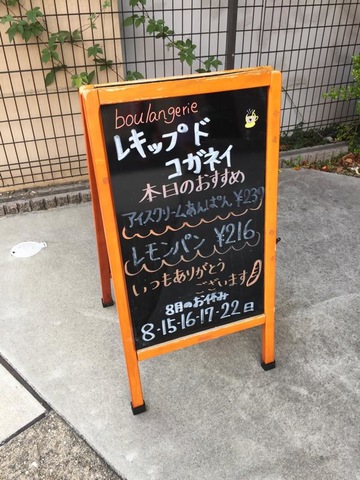 boulangerie
レキップド
コガネイ
本日のおすすめ
アイスクリームあんぱん ¥239
レモンパン ¥216
いつもありがとう
ございます
8月のお休み
8-15-16-17-22日